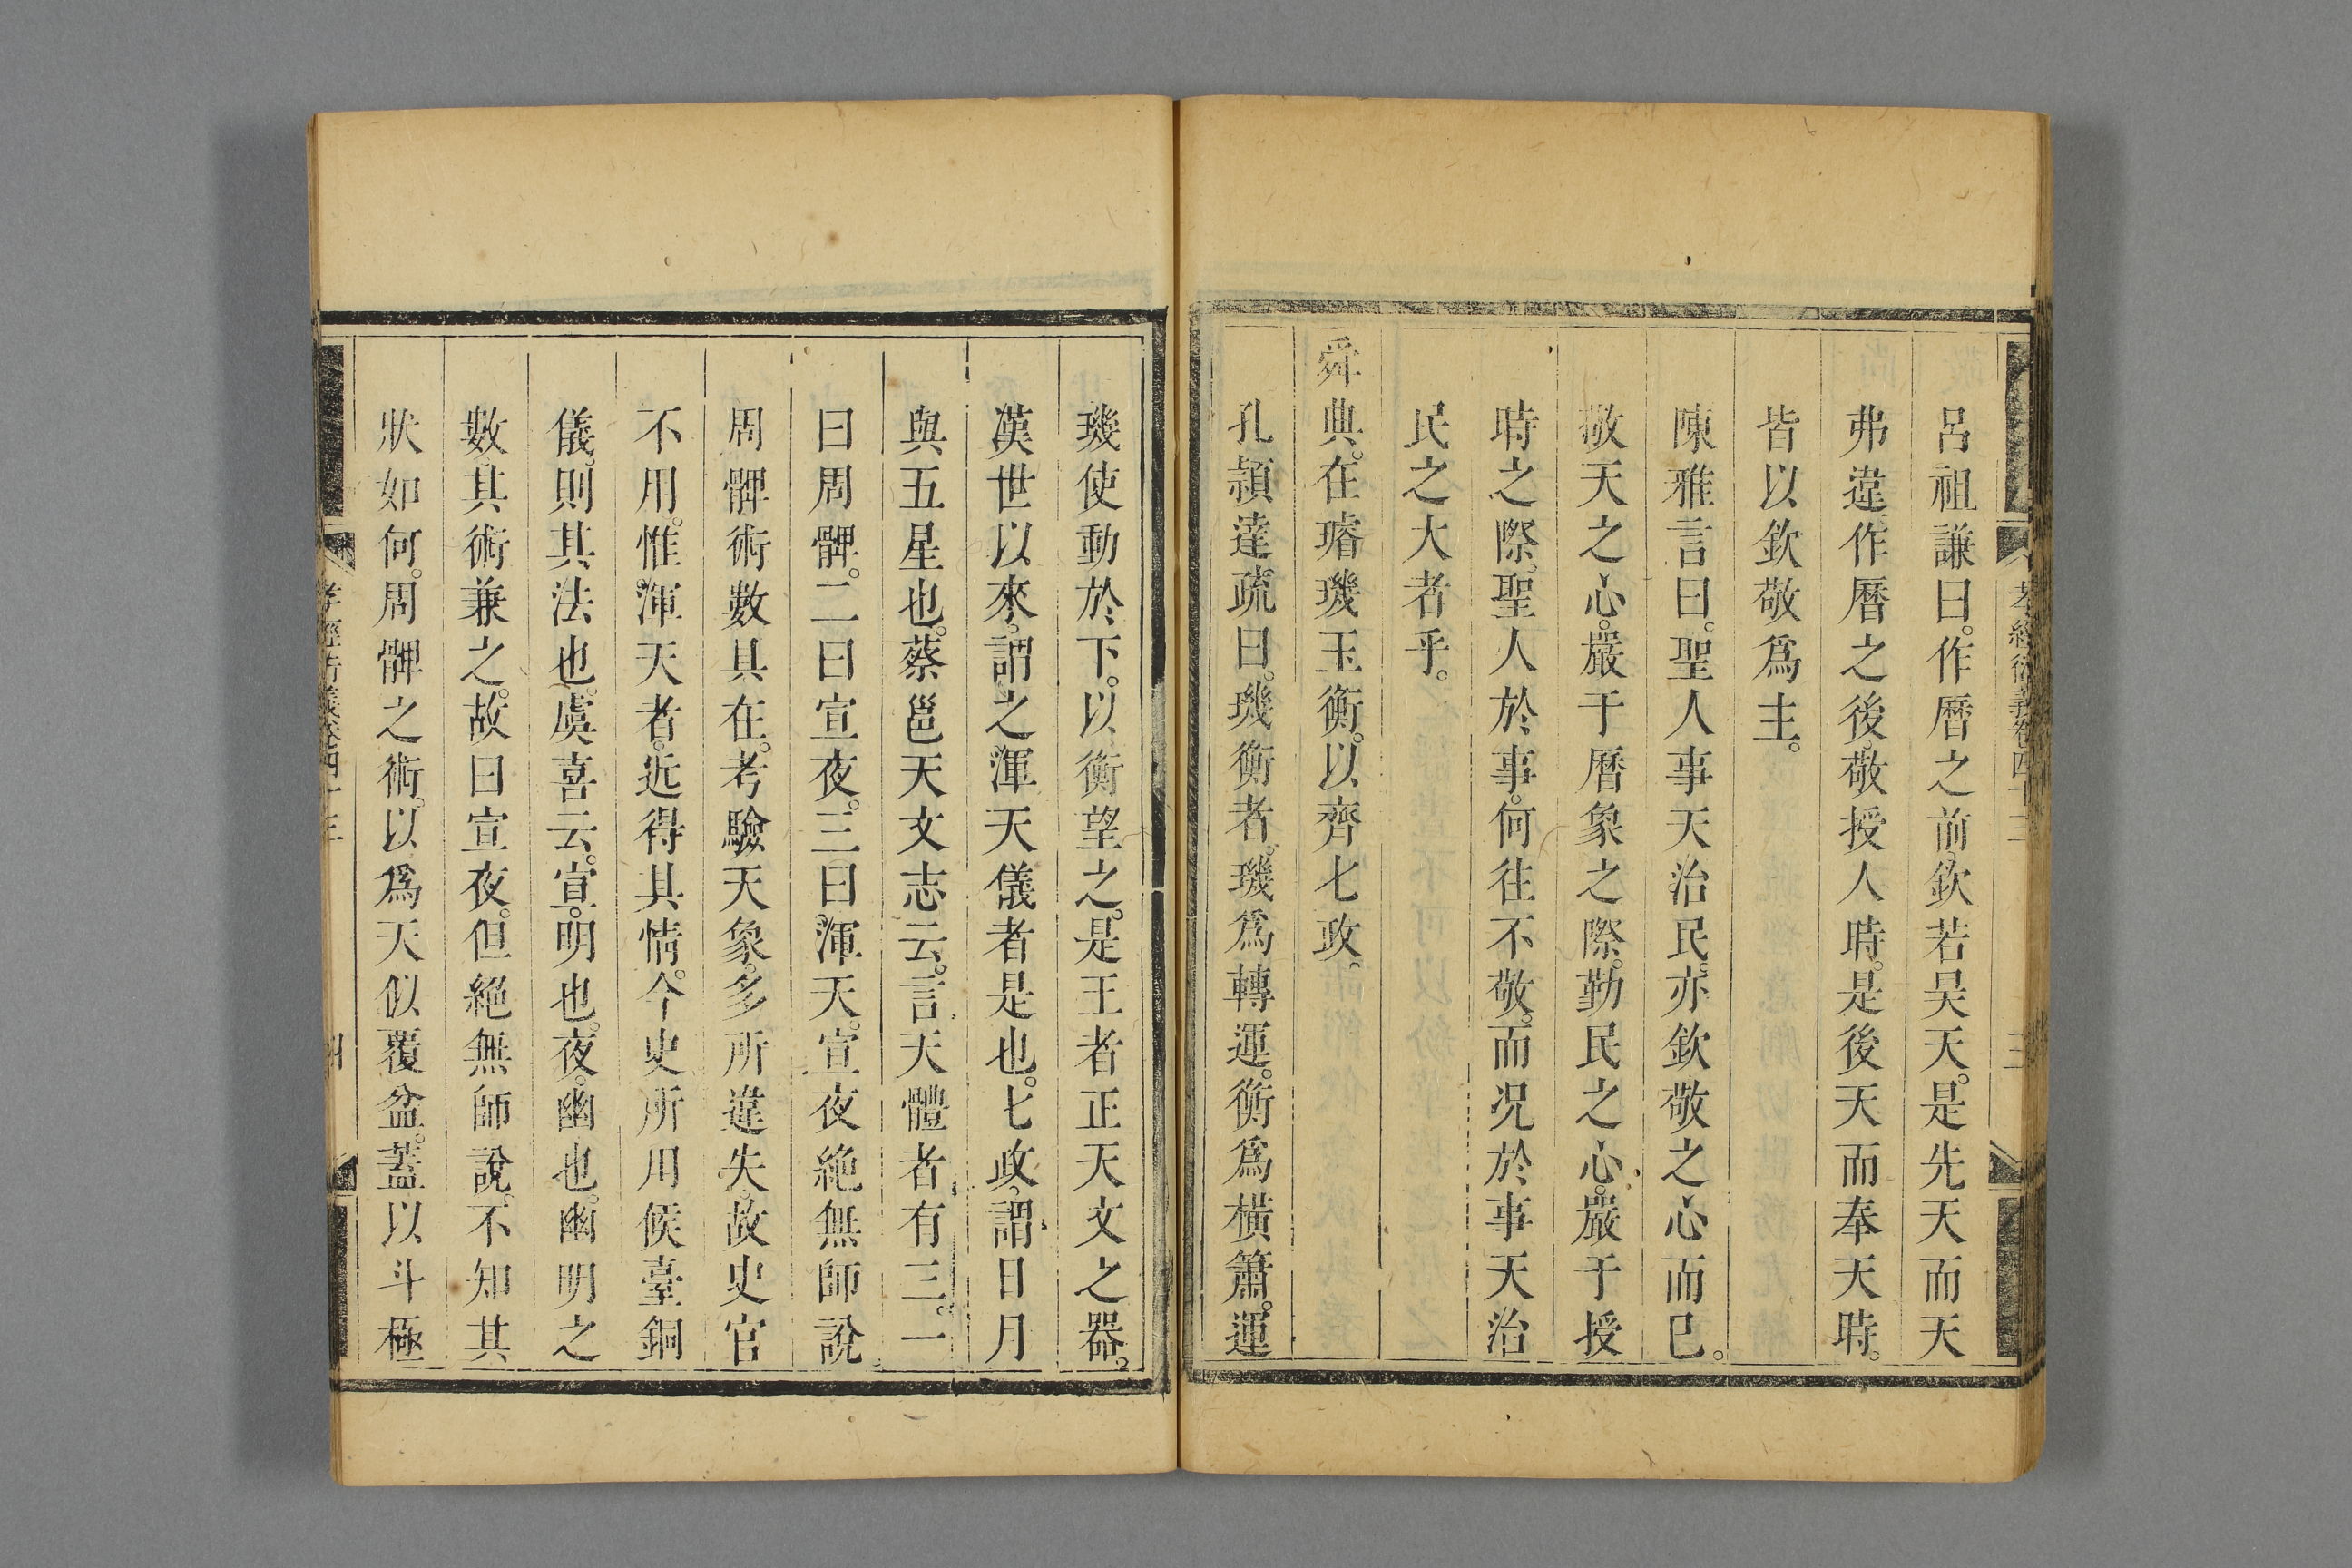 孝經衍義卷四十三 三
呂祖謙曰。作曆之前。欽若昊天。是先天而天
弗違。作曆之後。敬授人時。是後天而奉天時。
皆以欽敬爲主。
陳雅言曰。聖人事天治民。亦欽敬之心而已。
敬天之心。嚴于曆象之際。勤民之心。嚴于授
時之際。聖人於事。何往不敬。而况於事天治
民之大者乎。
舜典。在璿璣玉衡。以齊七政。
孔頴達疏曰。璣衡者。璣爲轉運。衡爲橫簫。運
璣使動於下。以衡望之。是王者正天文之器。
漢世以來。謂之渾天儀者是也。七政。謂日月
與五星也。蔡邕天文志云。言天體者有三。一
曰周髀。二曰宣夜。三曰渾天。宣夜絶無師說
周髀術數具在。考驗天象。多所違失。故史官
不用。惟渾天者。近得其情。今史所用候臺銅
儀。則其法也。虞喜云。宣。明也。夜。幽也。幽明之
數。其術兼之。故曰宣夜。但絶無師說。不知其
狀如何。周髀之術。以爲天似覆盆。蓋以斗極
孝經衍義卷四十三